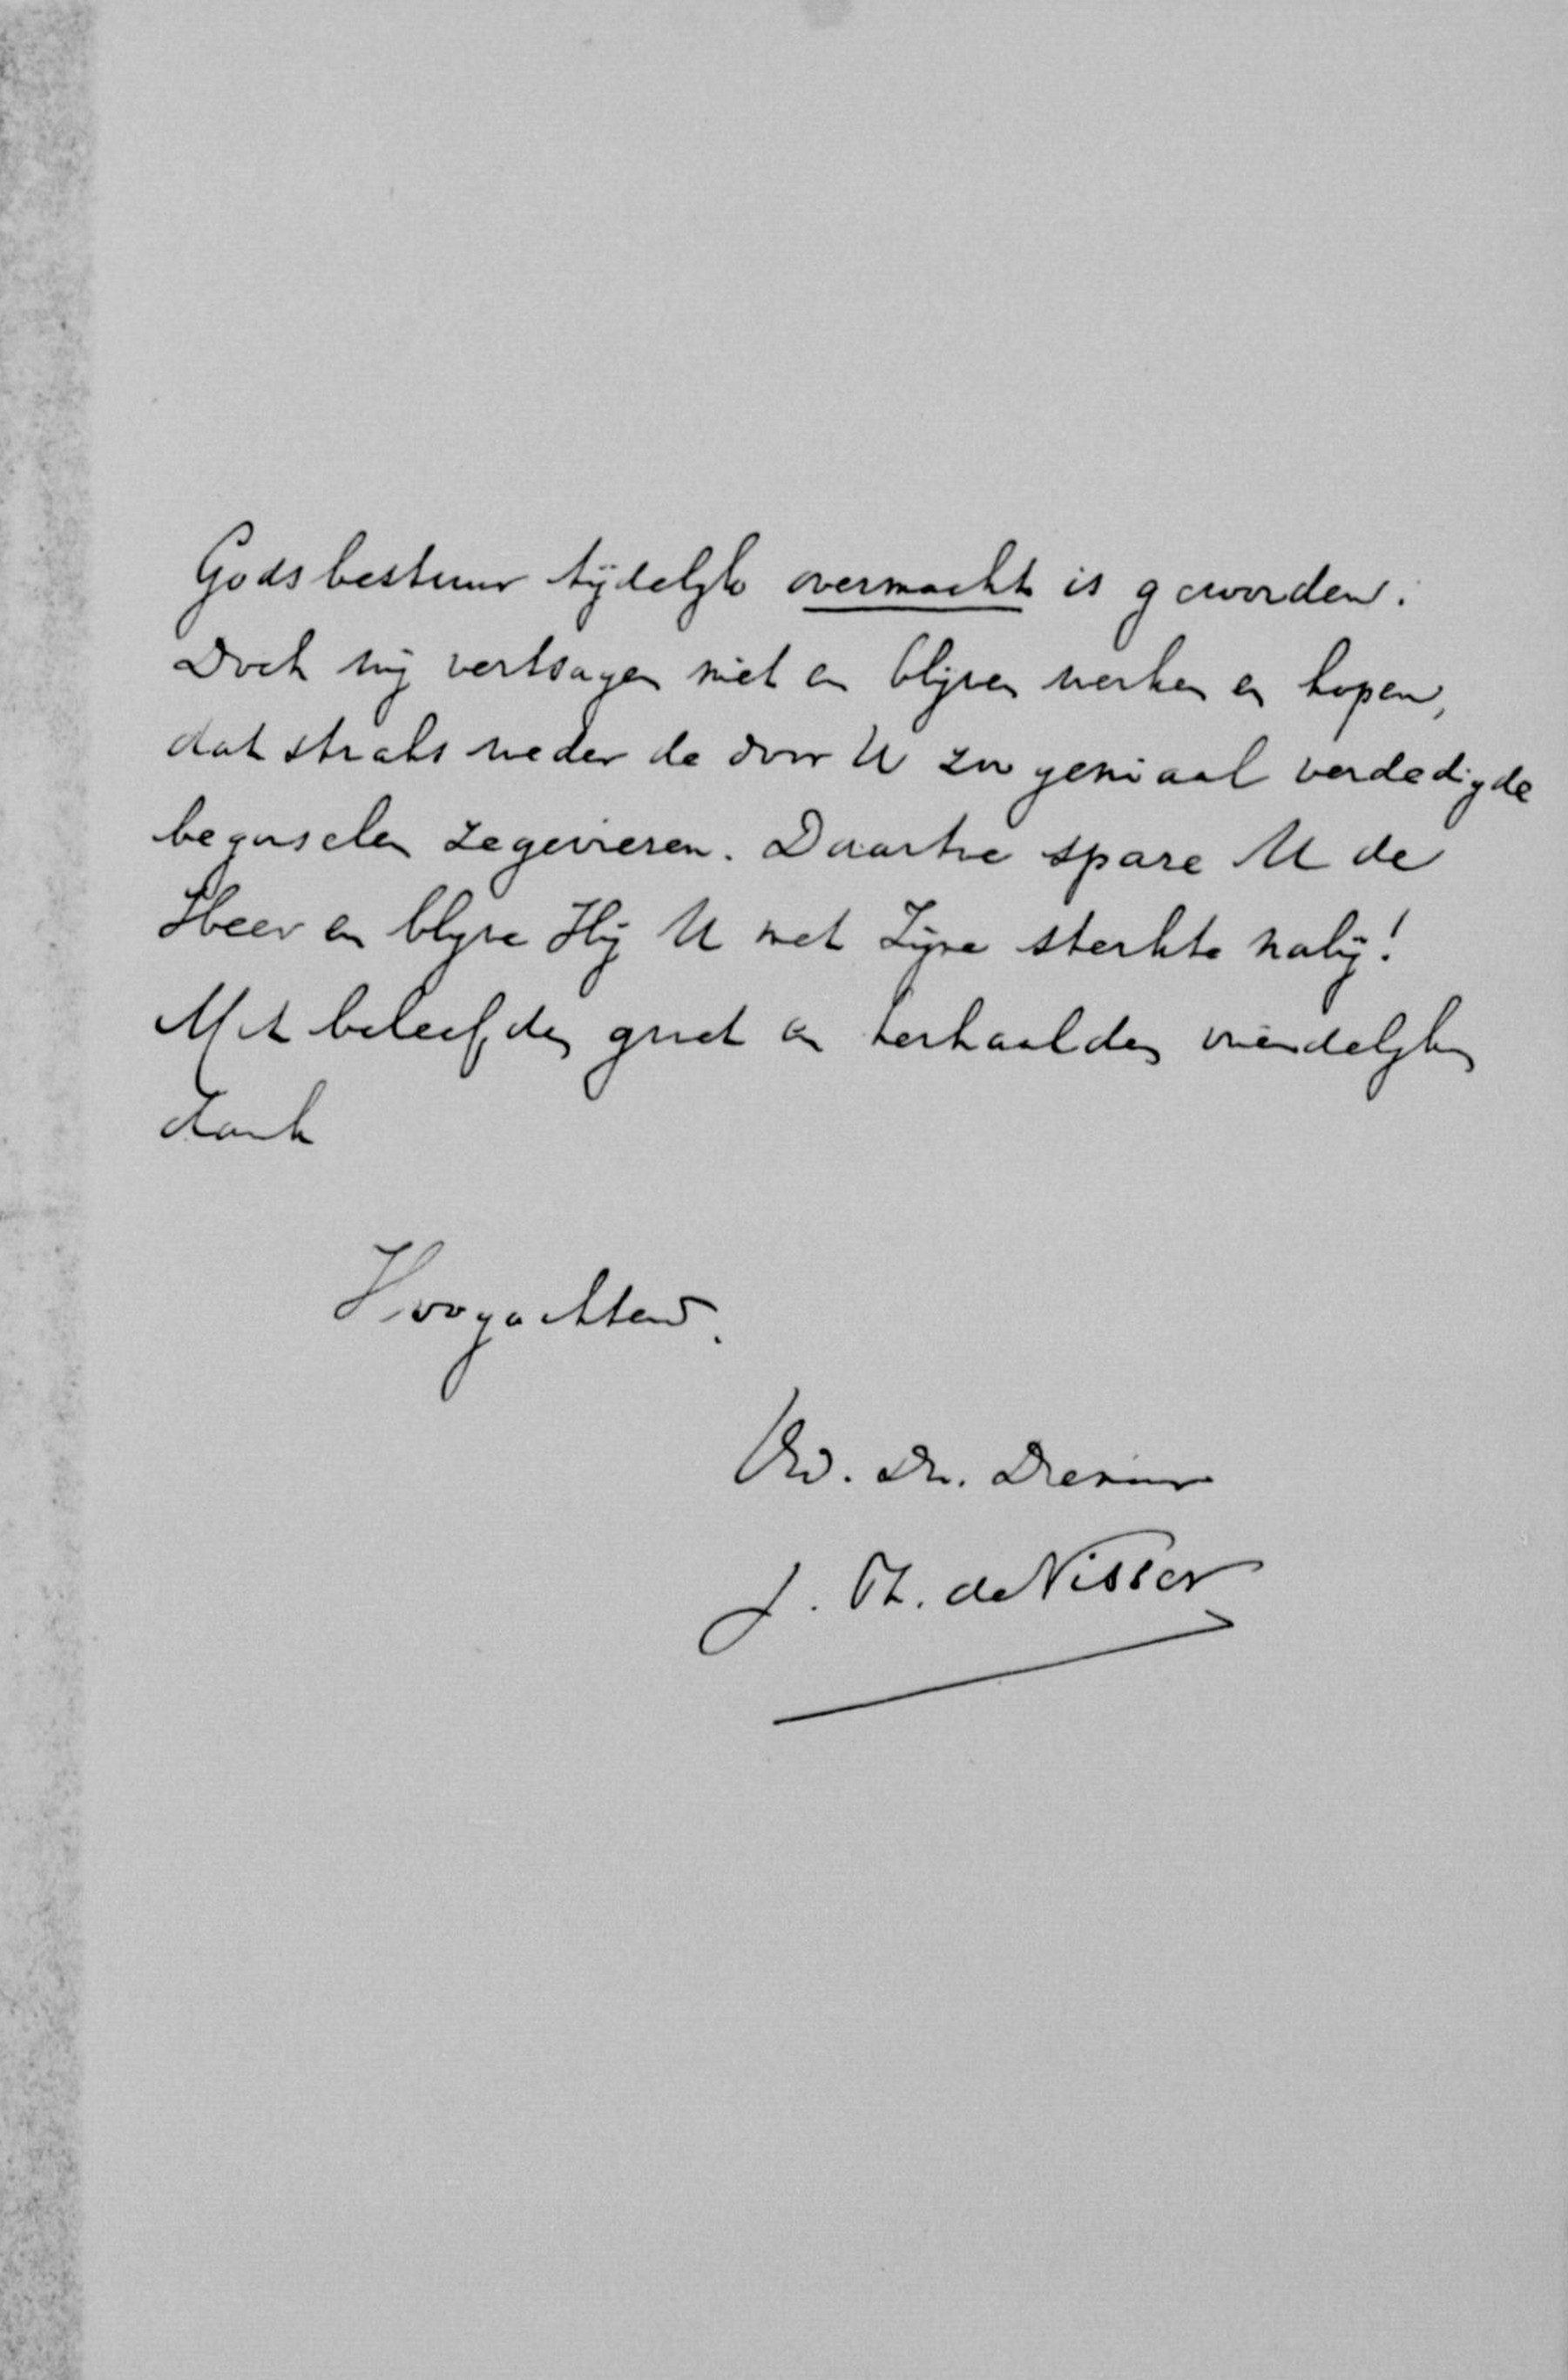 Godsbestuur tijdelijk overmacht is geworden.
Doch wij vertsagen niet en blijven werken en hopen,
dat straks weder de door U zoo geniaal verdedigde
beginselen zegevieren. Daartoe spare U de
Heer en blijve Hij U met Zijne sterkte nabij!
Met beleefden groet en herhaalden vriendelijken
dank
Hoogachtend.
Uw. Dr. Dienaar
J. Th. de Visser